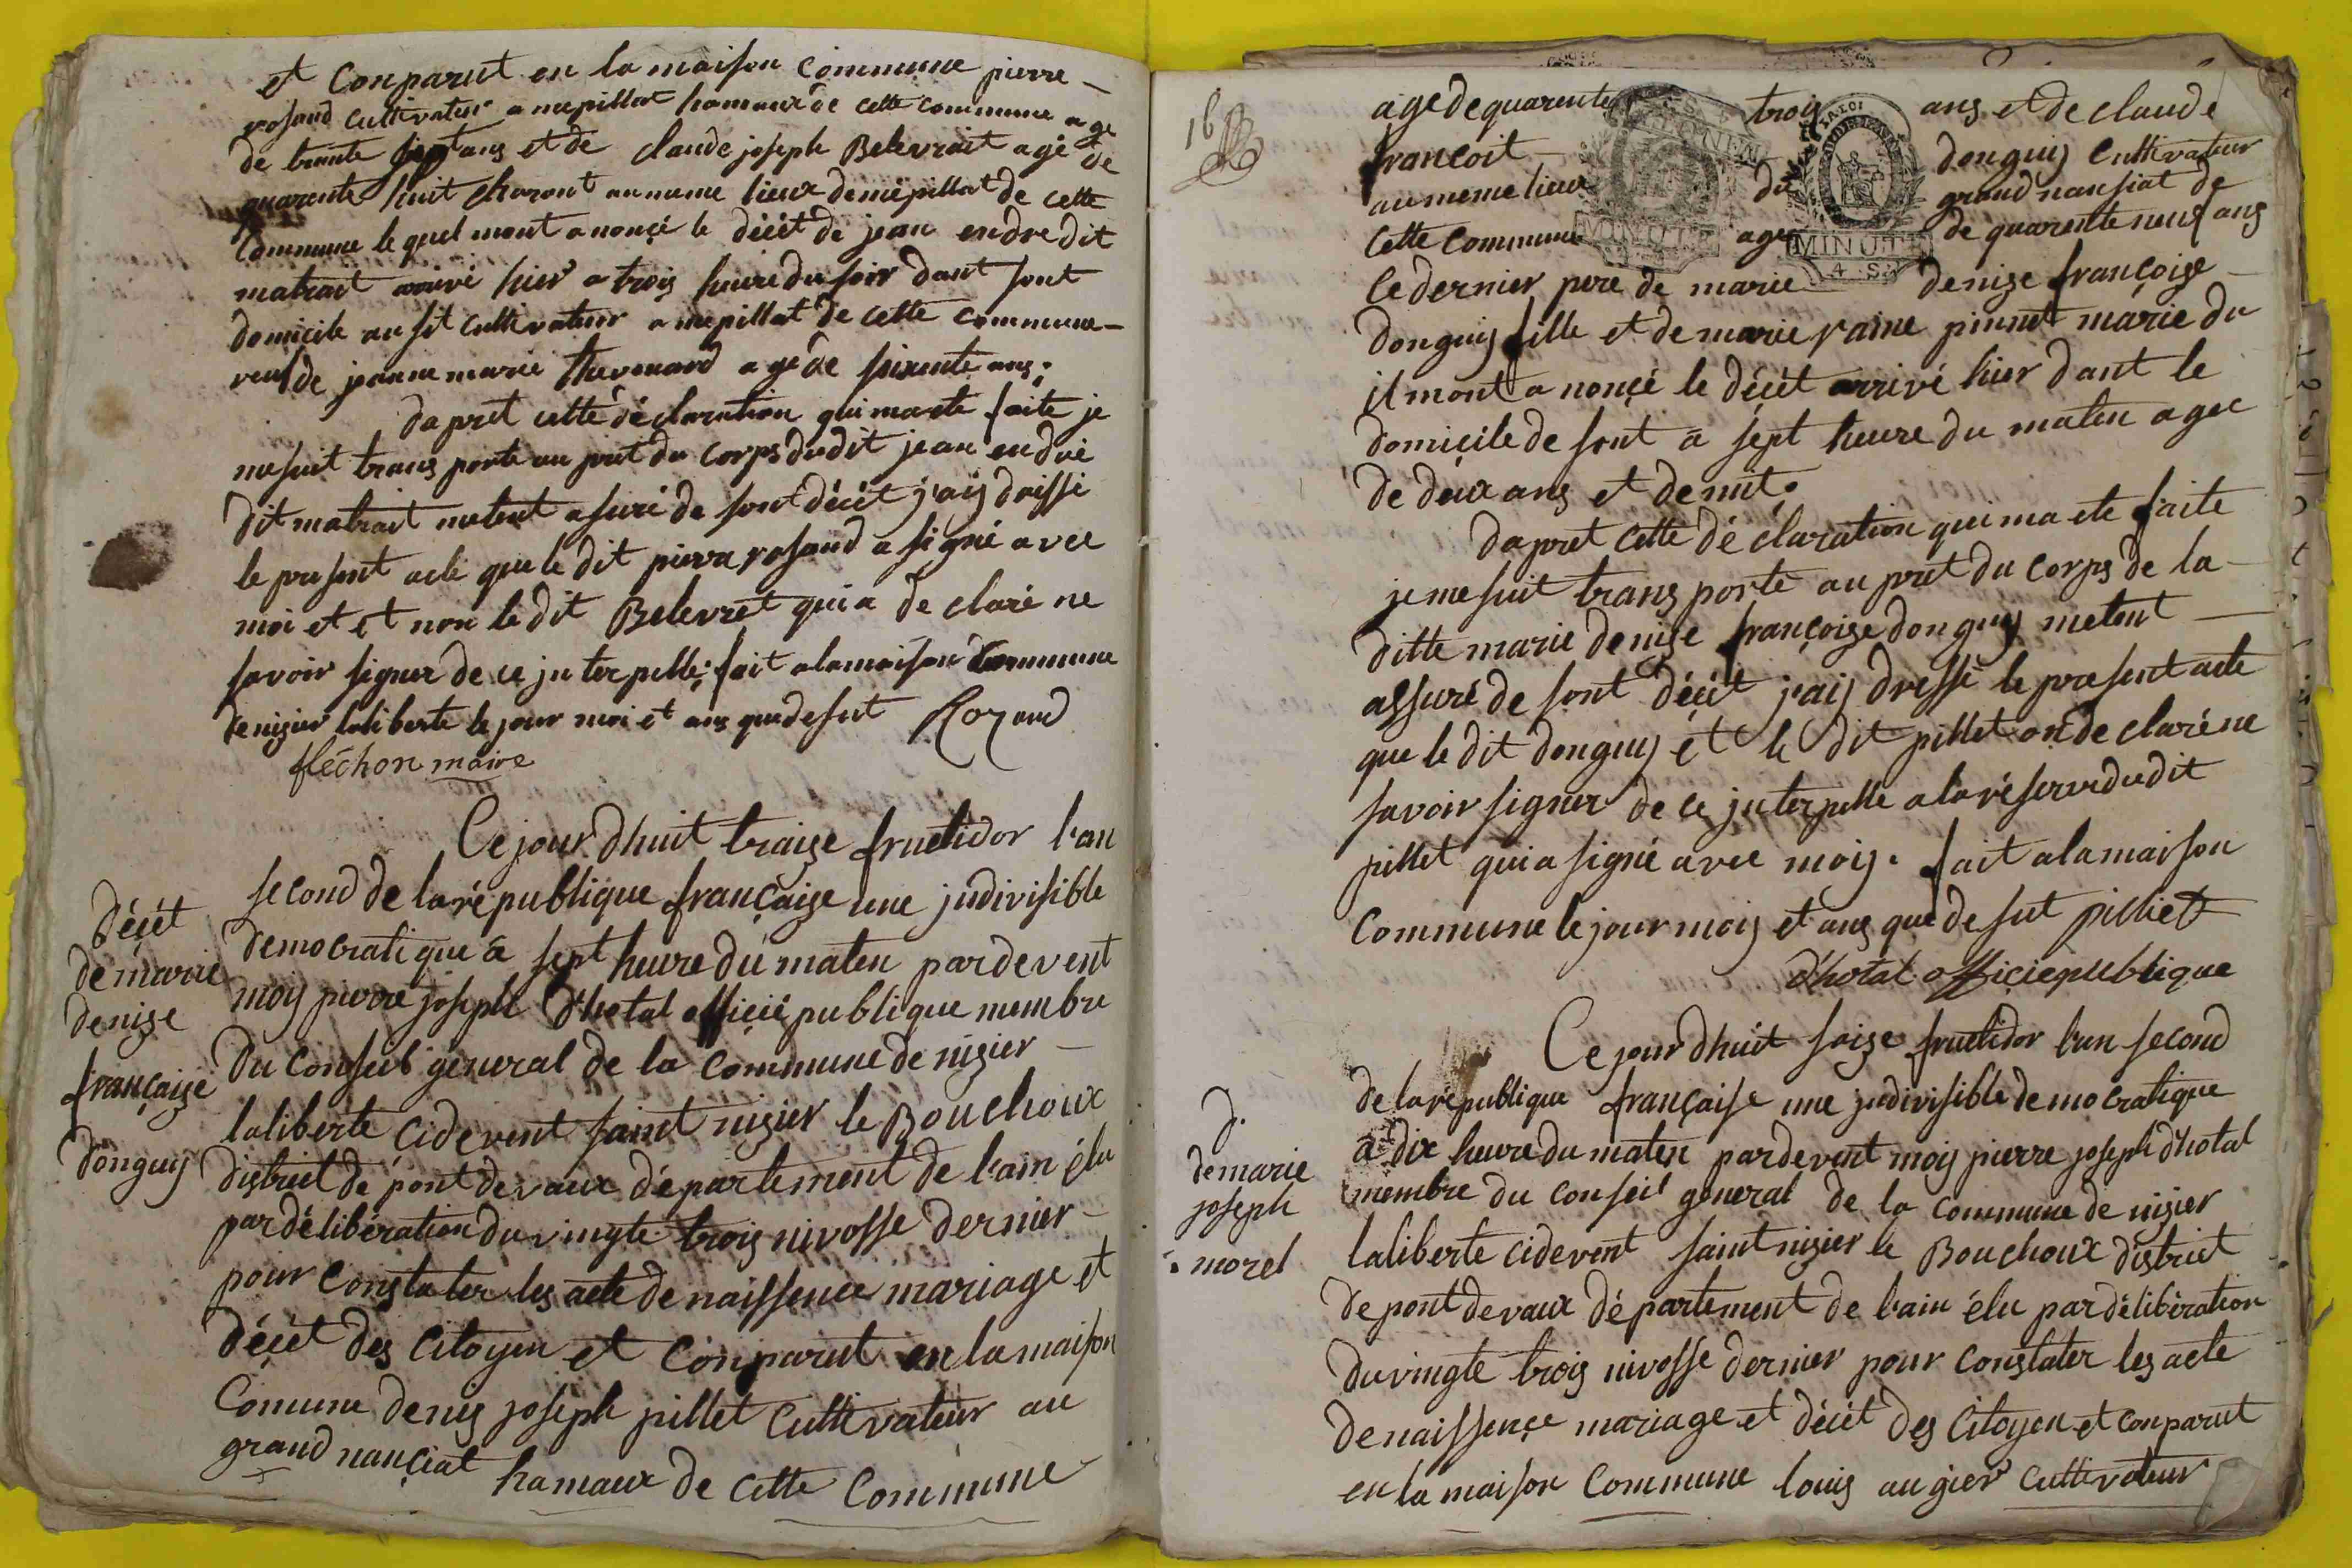 et Conparut en la maison Commune pierre
rosand Cultivateur a mepillat hamaux de cette Commune age
de trante sept ans et de claude joseph Belevrait agé de
quarente huit charont au meme lieux de mepillat de cette
Commune le quel mont anoncé le décét de jean endre dit
matrait arrivé hier a trois heure du soir dant sont
domicile ausit Cultivateur a mepillat de cette Commune
veuf de jeanne marie thevenard agé de soixente ans.
dapret cette déclaration qui ma ete faite je
me suit trans porte au pret du Corps dudit jean endré
dit matrait metent asuré de sont décét j'aij draissé
le present acte que le dit pierre rosand a signé avec
moi et et non le dit Belevret qui a de claré ne
savoir signer de ce jnterpellé. fait a la maison Commune
de nizier laliberte le jour moi et ans que desut Rozand
fléchon maire
Ce jour d'huit traize fructidor l'an
second de la république française une jndivisible
democratique a sept heure du maten pardevent
moy pierre joseph d'hotal officié publique membre
du Conseil géneral de la Commune de nizier
laliberte cidevent saint nizier le Bouchoux
district de pont devaux département de l'ain élu
par délibération du vingte trois nivosse dernier
pour Constater les acte de naissence mariage et
décét des Citoyen et Conparut en la maison
Comune denis joseph pillet Cultivateur au
grand nançiat hamaux de cette Commune
décét
de marie
denise
françaize
donguy
16
age de quarente trois ans et de claude
francoit donguy Cultivateur
au meme lieux du grand nansiat de
Cette Commune age de quarente neuf ans
MINUTE
MINUTE
4 . S.
Ce dernier pere de marie denize françoise
donguy fille et de marie raine pinnet marié du
il mont a noncé le décét arrivé hier dant le
domicile de sont a sept heure du maten agee
de deux ans et demit.
dapret cette déclaration qui ma ete faite
je me suit trans porte au pret du Corps de la
ditte marie denize françoize donguy metent
assuré de sont décét j'aij dressé le present acte
que le dit donguy et le dit pillet on de claré ne
savoir signer de ce jnterpelle a la réserve dudit
pillet qui a signé avec moij. fait a la maison
Commune le jour mois et ans que de sut pilliet
d'hotal officie publique
Ce jour d'huit saize fructidor l'an second
de la république française une jndivisible democratique
a dix heure du maten pardevent moij pierre joseph d'hotal
membre du Conseil géneral de la Commune de nizier
laliberte cidevent saint nizier le Bouchoux district
de pont devaux département de l'ain élu par délibération
du vingte trois nivosse dernier pour Constater les acte
de naissençe mariage et décét des Citoyen et Conparut
en la maison Commune louis augier Cultivateur
d.
de marie
joseph
morel